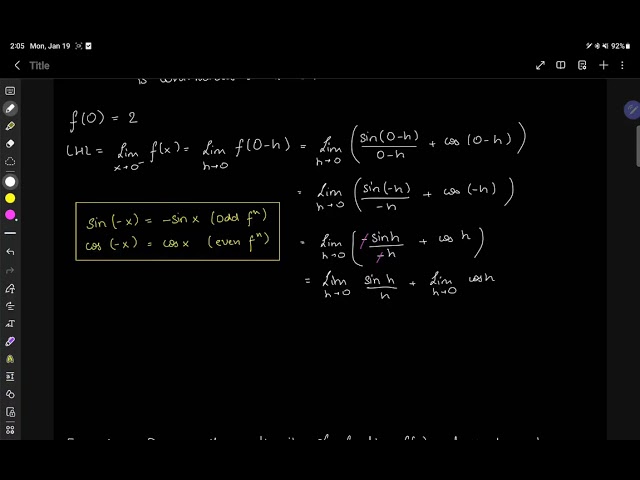 2:05 Mon, Jan 19 92%
Title
f(0) = 2
LHL = lim x→0⁻ f(x) = lim h→0 f(0-h) = lim h→0 (sin(0-h)/0-h + cos(0-h))
= lim h→0 (sin(-h)/-h + cos(-h))
sin(-x) = -sinx (odd fⁿ)
cos(-x) = cosx (even fⁿ)
= lim h→0 (-sinh/-h + cos h)
= lim h→0 sinh/h + lim h→0 cosh